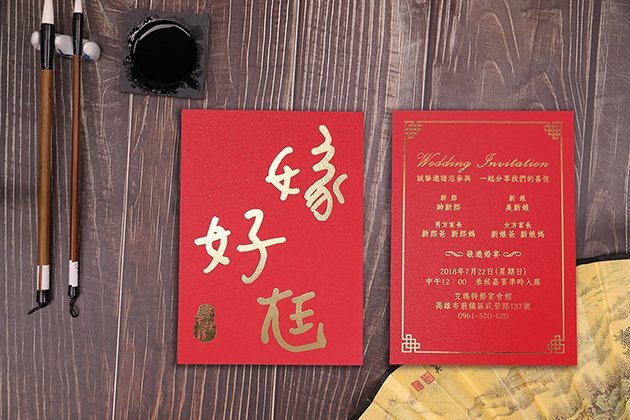 嫁
好
尪
Wedding Invitation
誠摯邀請您參與 一起分享我們的喜悅
新 郎 新 娘
帥新郎 美新娘
男方家長 女方家長
新郎爸 新郎媽 新娘爸 新娘媽
敬邀婚宴
2018年7月22日(星期日)
中午12：00 恭候嘉賓準時入席
艾瑪特婚宴會館
高雄市前鎮區武營路187號
0961-520-620